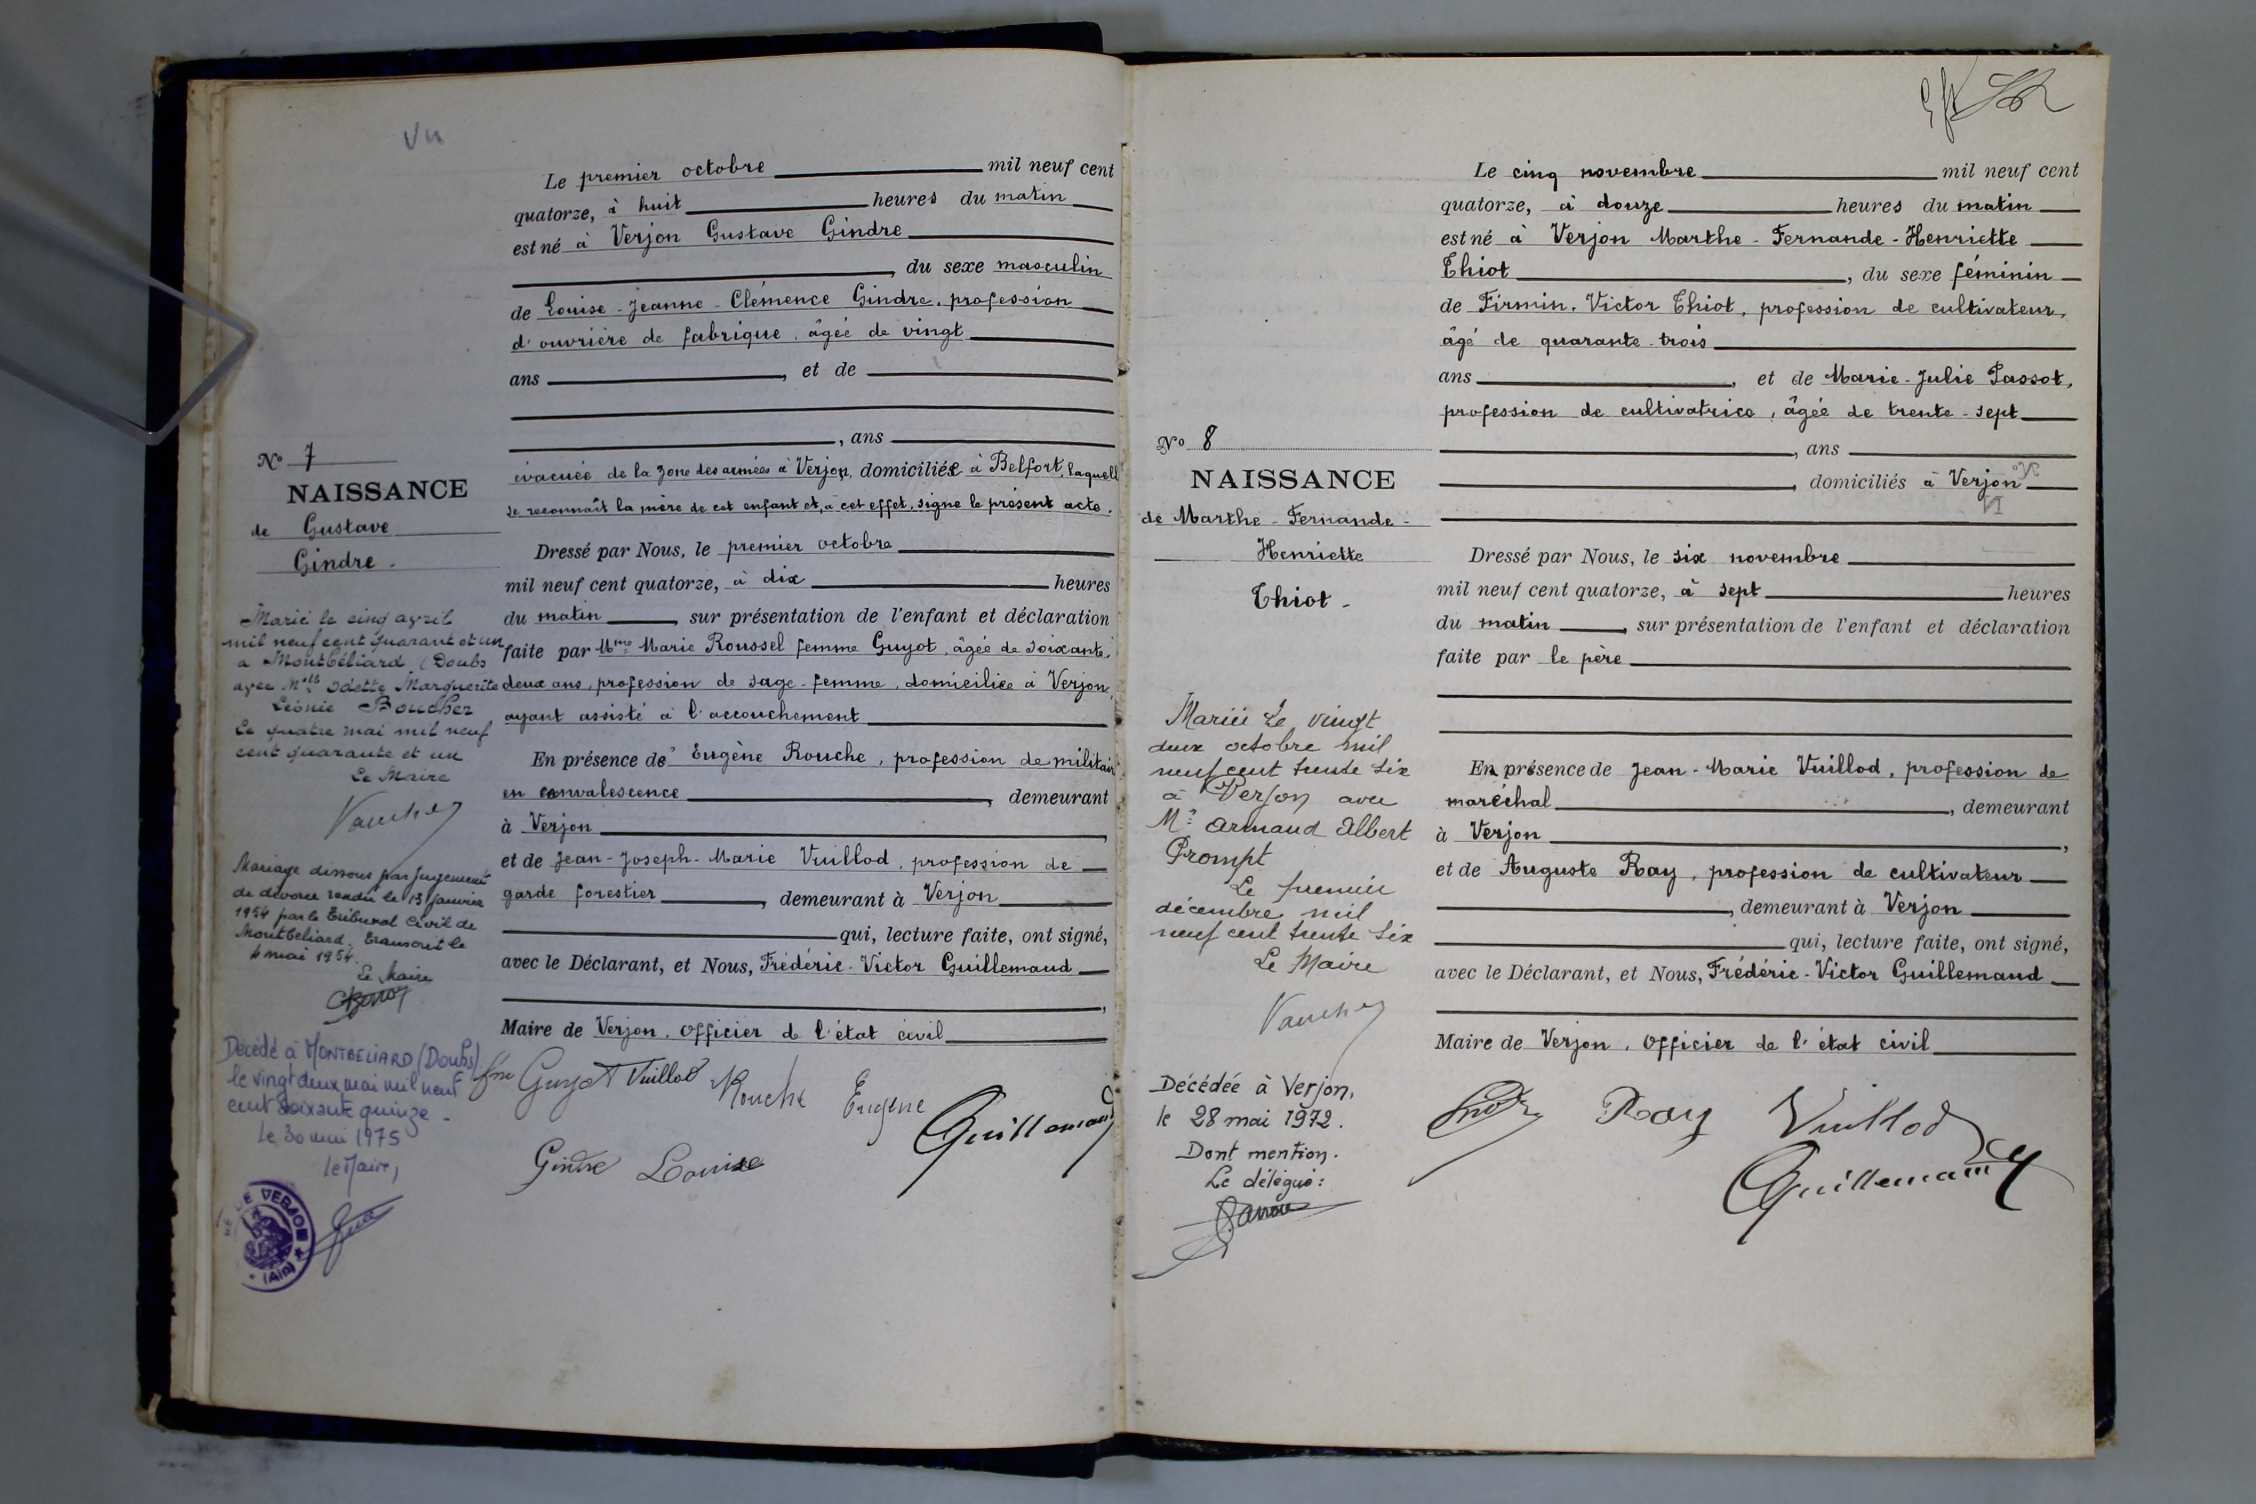 Vu
Le premier octobre mil neuf cent
quatorze, à huit heures du matin
est né à Verjon Gustave Gindre
, du sexe masculin
de Louise-Jeanne-Clémence Gindre, profession
d'ouvrière de fabrique, âgée de vingt
ans , et de
, ans
évacuée de la zone des armées à Verjon, domiciliée à Belfort, laquelle
se reconnaît la mère de cet enfant et, à cet effet, signe le présent acte.
Dressé par Nous, le premier octobre
mil neuf cent quatorze, à dix heures
du matin , sur présentation de l'enfant et déclaration
faite par Mme Marie Roussel femme Guyot, âgée de soixante-
deux ans, profession de sage-femme, domiciliée à Verjon,
ayant assisté à l'accouchement
En présence de Eugène Rouche, profession de militair
en convalescence , demeurant
à Verjon ,
et de Jean-Joseph-Marie Vuillod, profession de
garde forestier , demeurant à Verjon
qui, lecture faite, ont signé,
avec le Déclarant, et Nous, Frédéric-Victor Guillemaud
,
Maire de Verjon, Officier de l'état civil
fme Guyot Vuillod Rouche Eugène
Guillemaud
Gindre Louise
No 7
NAISSANCE
de Gustave
Gindre.
Marié le cinq avril
mil neuf cent quarant et un
a Montbéliard (Doubs
avec Melle Odette Marguerite
Léonie Boucher
Le quatre mai mil neuf
cent quarante et un
Le Maire
Vaucher
Mariage dissous par jugement
de divorce rendu le 13 janvier
1954 par le Tribunal Civil de
Montbéliard. Transcrit le
4 mai 1954.
Le Maire
Décédé à MONTBELIARD (Doubs)
le vingt deux mai mil neuf
cent soixante quinze -
Le 30 mai 1975
le Maire,
DE VERJON
(Ain)
Le cinq novembre mil neuf cent
quatorze, à douze heures du matin
est né à Verjon Marthe-Fernande-Henriette
Thiot , du sexe féminin
de Firmin-Victor Thiot, profession de cultivateur,
âgé de quarante-trois
ans , et de Marie-Julie Passot,
profession de cultivatrice, âgée de trente-sept
, ans
, domiciliés à Verjon
Dressé par Nous, le six novembre
mil neuf cent quatorze, à sept heures
du matin , sur présentation de l'enfant et déclaration
faite par le père
En présence de Jean-Marie Vuillod, profession de
maréchal , demeurant
à Verjon ,
et de Auguste Ray, profession de cultivateur
, demeurant à Verjon
qui, lecture faite, ont signé,
avec le Déclarant, et Nous, Frédéric-Victor Guillemaud
Maire de Verjon, Officier de l'état civil
Ray Vuillod
Guillemaud
No 8
NAISSANCE
de Marthe-Fernande-
Henriette
Thiot-
Mariée Le vingt
deux octobre mil
neuf cent trente six
à Verjon avec
Mr Armand Albert
Prompt
Le premier
décembre mil
neuf cent trente six
Le Maire
Vaucher
Décédée à Verjon,
le 28 mai 1972.
Dont mention.
Le délégué: